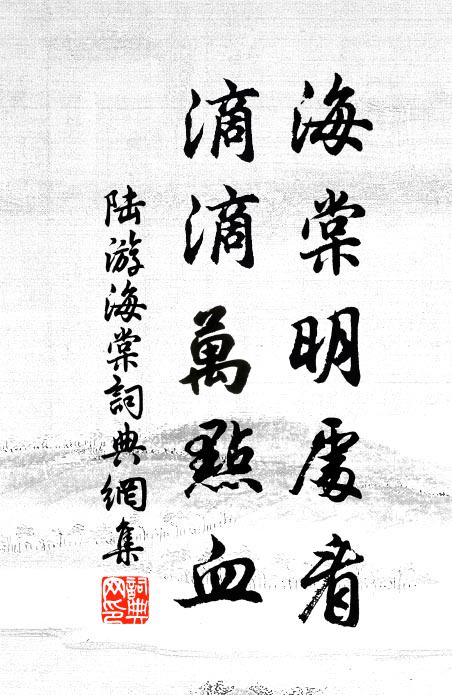 海棠明處看
滴滴萬點血
陆游海棠詞典網集
詞典網印